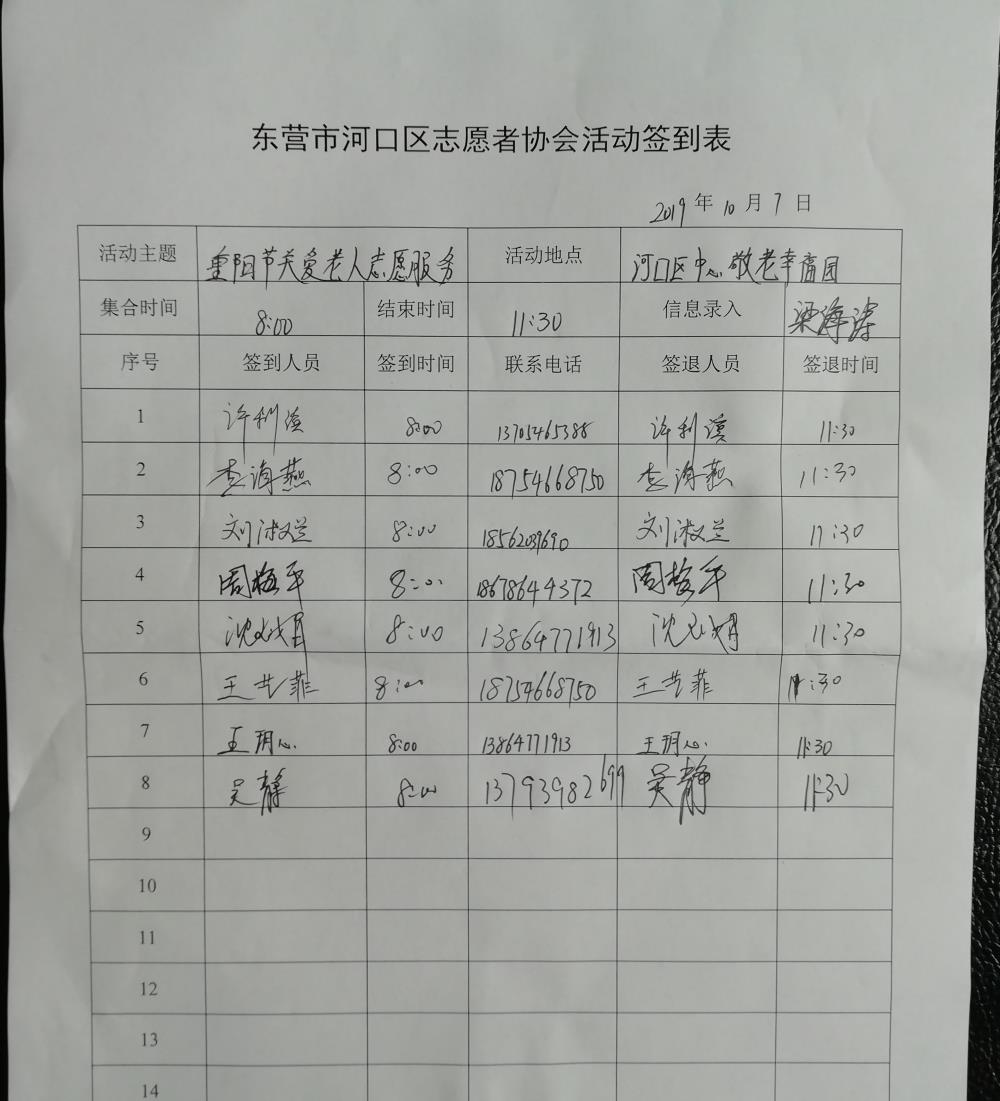 东营市河口区志愿者协会活动签到表
2019 年 10 月 7 日
活动主题 重阳节关爱老人志愿服务 活动地点 河口区中心敬老幸福园
集合时间 8:00 结束时间 11:30 信息录入 梁海涛
序号 签到人员 签到时间 联系电话 签退人员 签退时间
1 许利滨 8:00 13705465388 许利滨 11:30
2 李海燕 8:00 18754668750 李海燕 11:30
3 刘淑兰 8:00 18562039690 刘淑兰 11:30
4 周梅平 8:00 18678644372 周梅平 11:30
5 沈 8:00 13864771913 沈 11:30
6 王艺菲 8:00 18754668750 王艺菲 11:30
7 王玥心 8:00 13864771913 王玥心 11:30
8 吴静 8:00 13793982699 吴静 11:30
9
10
11
12
13
14